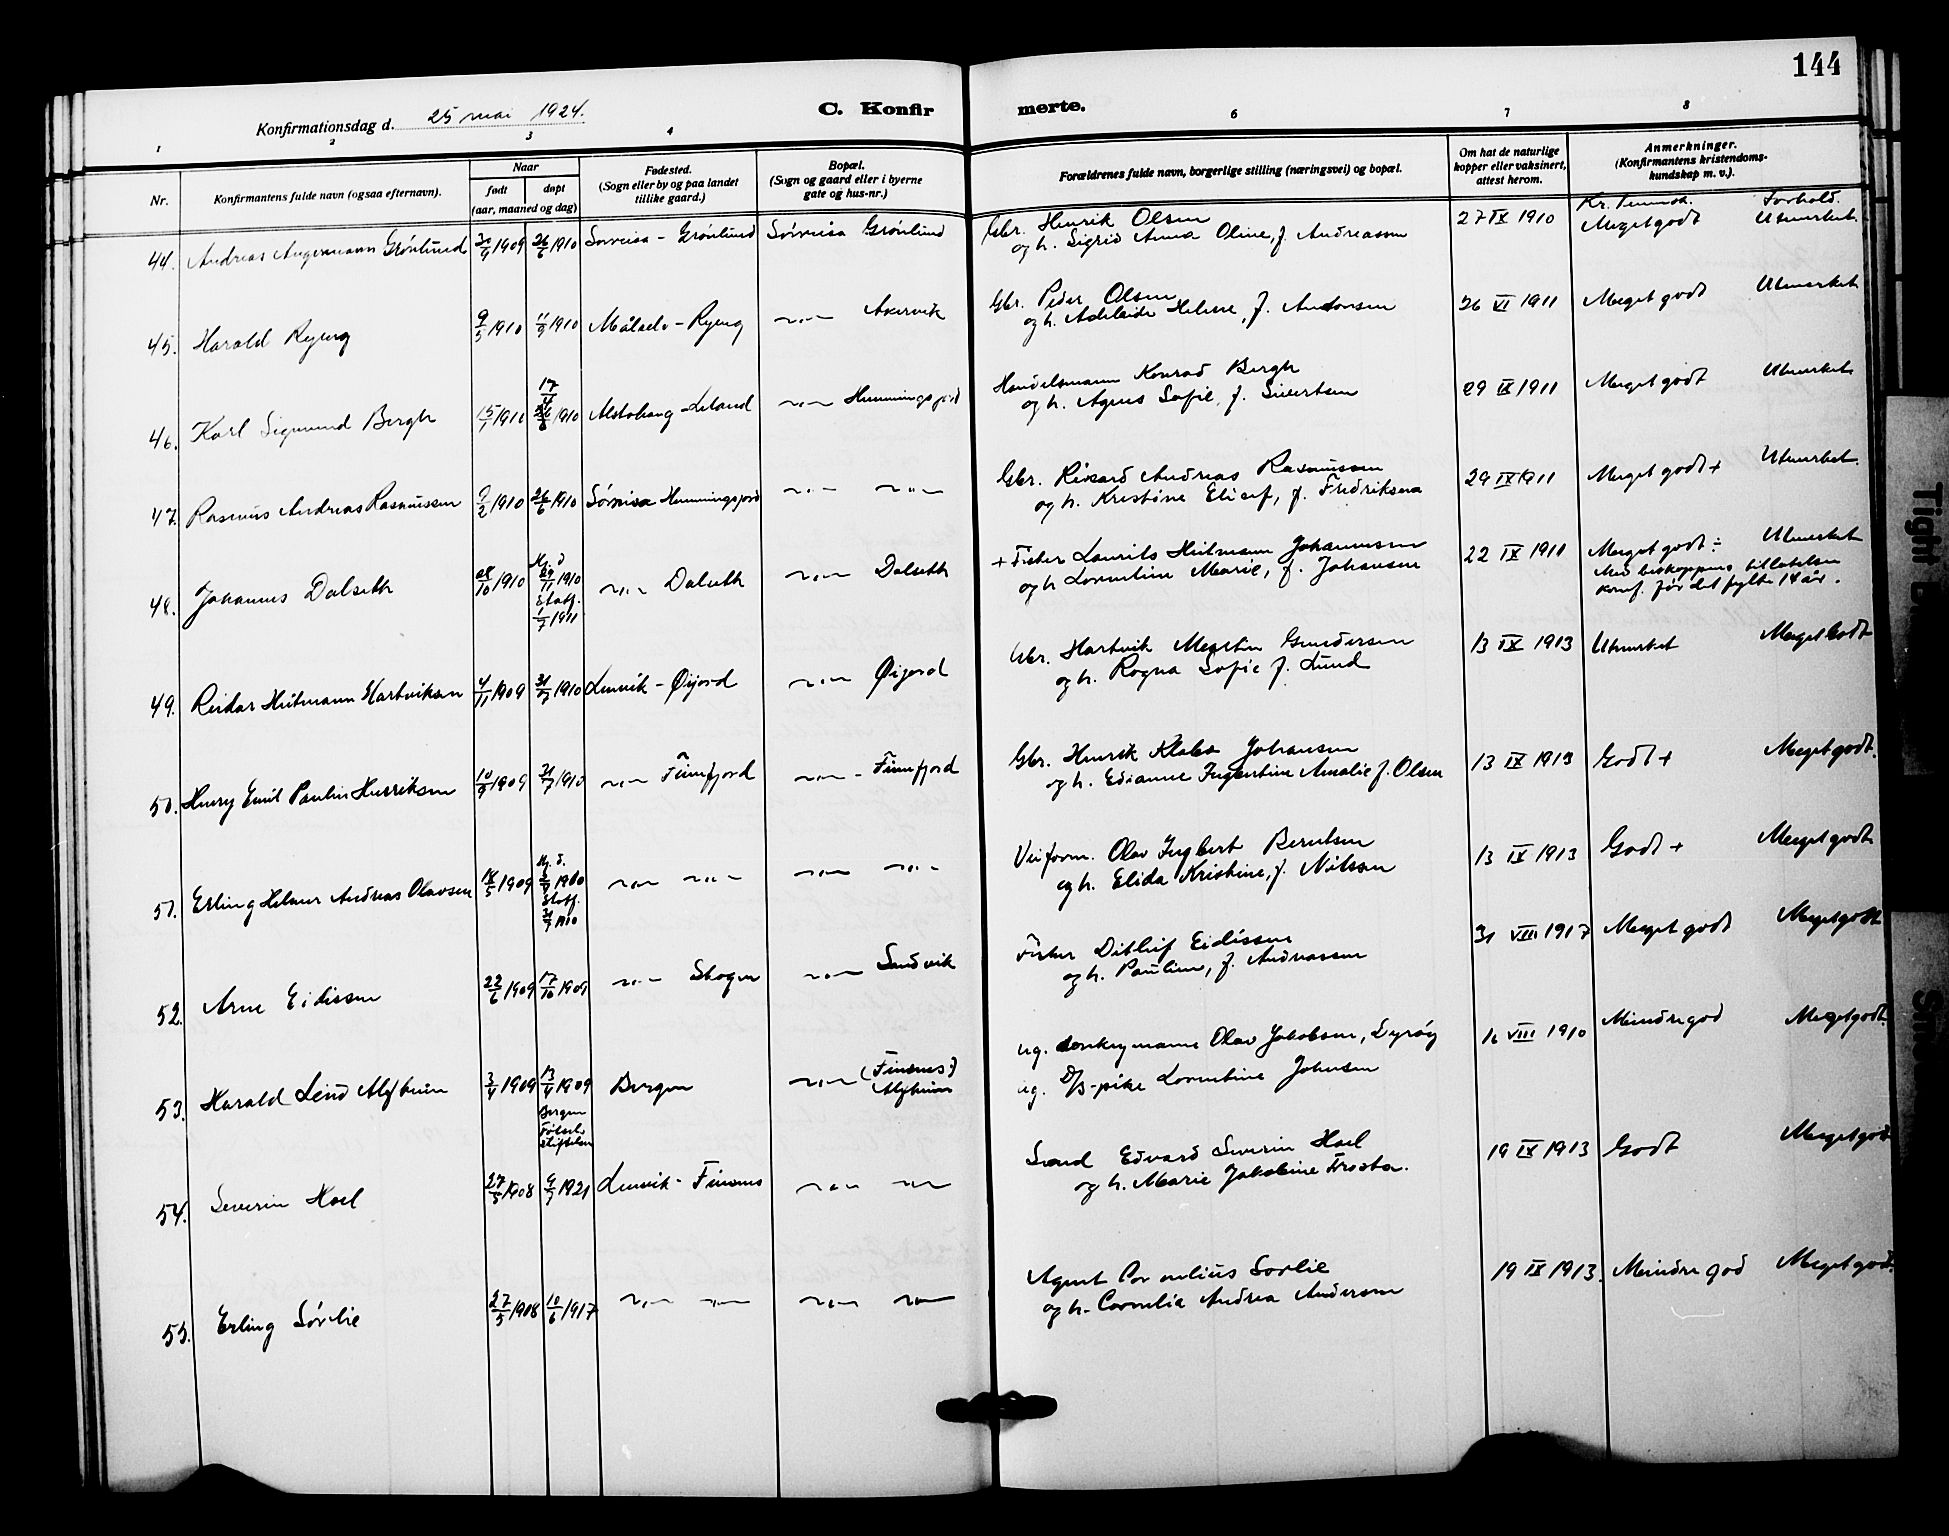 144
Konfirmationsdag d. 25 mai 1924.
C. Konfirmerte.
1 2 3 4 6 7 8
Nr.
Konfirmantens fulde navn (ogsaa efternavn).
Naar
født
døpt
(aar, maaned og dag)
Fødested.
(Sogn eller by og paa landet
tillike gaard.)
Bopæl.
(Sogn og gaard eller i byerne
gate og hus-nr.)
Forældrenes fulde navn, borgerlige stilling (næringsvei) og bopæl.
Om hat de naturlige
kopper eller vaksinert,
attest herom.
Anmerkninger.
(Konfirmantens kristendoms-
kundskap m. v.).
Kr. Forhold.
44. Andreas Angermann Grønlund 26/6 1910 Sørreisa - Grønlund Sørreisa Grønlund
Gbr. Henrik Olsen 27 IX 1910 Meget godt Utmerket.
og h. Sigrid Anna Oline, f. Andreassen
45. Harald Ryeng 9/5 1910 11/9 1910 Målselv - Ryeng -"- Akervik
Gbr. Peder Olsen 26 VI 1911 Meget godt Utmerket
og h. Adelaide Helene, f. Antonsen
46. Karl Sigmund Bergh 15/1 1910 Alstahaug - -"- Hemmingsfjord
Handelsmann Konrad Bergh 29 IX 1911 Meget godt Utmerket
og h. Agnes Sofie, f. Sivertsen
47. Rasmus Andreas Rasmussen 9/2 1910 26/6 1910 Sørreisa Hemmingsfjord -"- -"-
Gbr. Rikard Andreas Rasmussen 29 IX 1911 Meget godt + Utmerket.
og h. Kristine Elisef, f. Fredriksen
48. Johannes Dalseth 28/10 1910 Hj. d. 29/11 1910 Stadf. 1/7 1911 -"- Dalseth -"- Dalseth
+ Fisker Laurits Hitmann Johannessen 22 IX 1911 Meget godt ÷ Utmerket
og h. Lorentine Marie, f. Johansen Med biskoppens tillatelse
konf. før det fylte 14 år.
49. Reidar Hitmann Hartviksen 4/11 1909 31/7 1910 Lenvik - Øijord -"- Øijord
Gbr. Hartvik Martin Gundersen 13 IX 1913 Utmerket Meget Godt
og h. Ragna Sofie f. Lund
50. Henry Emil Paulin Henriksen 10/9 1909 31/7 1910 -"- Finnfjord -"- Finnfjord
Gbr. Henrik Klabo Johansen 13 IX 1913 Godt + Meget godt.
og h. Edianne Ingertine Amalie f. Olsen
51. Erling Helmer Andreas Olavsen 18/5 1909 Hj. d. Stadf. 31/7 1910 -"- -"- -"- -"-
Veiform. Olav Ingbert Berntsen 13 IX 1913 Godt + Meget godt
og h. Elida Kristine, f. Nilssen
52. Arne Eidissen 22/6 1909 17/10 1909 -"- Skogen -"- Sandvik
Fisker Ditlef Eidissen 31 VIII 1917 Meget godt Meget godt
og h. Pauline, f. Andreassen
53. Harald Leind Alfheim 3/4 1909 13/4 1909 Bergen -"- (Finsnes)
Bergen Fødselsstiftelsen Alfheim
ug. Olav Jakobsen, Dyrøy 16 VIII 1910 Mindre god Meget godt.
ug. D/S-pike Lorentine Johnsen
54. Severin Hoel 27/5 1908 9/7 1921 Lenvik - Finsnes -"- -"-
Edvard Severin Hoel 19 IX 1913 Godt Meget god
og h. Marie Jakobine Frosta.
55. Erling Sørlie 27/5 1908 10/6 1917 -"- -"- -"- -"-
Agent Cornelius Sørlie 19 IX 1913. Mindre god Meget god.
og h. Cornelia Andrea Andersen